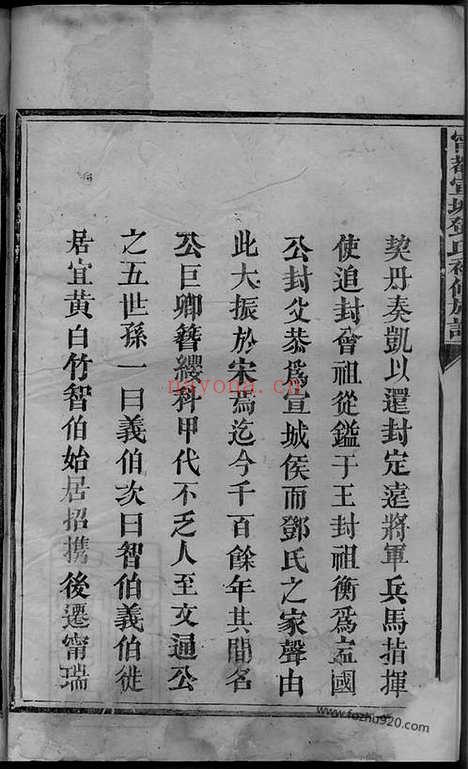 契丹奏凱以還封定遠將軍兵馬指揮
使追封曾祖從鎰于王封祖衡爲盂國
公封父恭爲宣城侯而鄧氏之家聲由
此大振於宋焉迄今千百餘年其間名
公巨卿簪纓科甲代不乏人至文通公
之五世孫一曰義伯次曰智伯義伯徙
居宜黄白竹智伯始居招携後遷甯瑞
nayona.cn
www.fozhu920.com